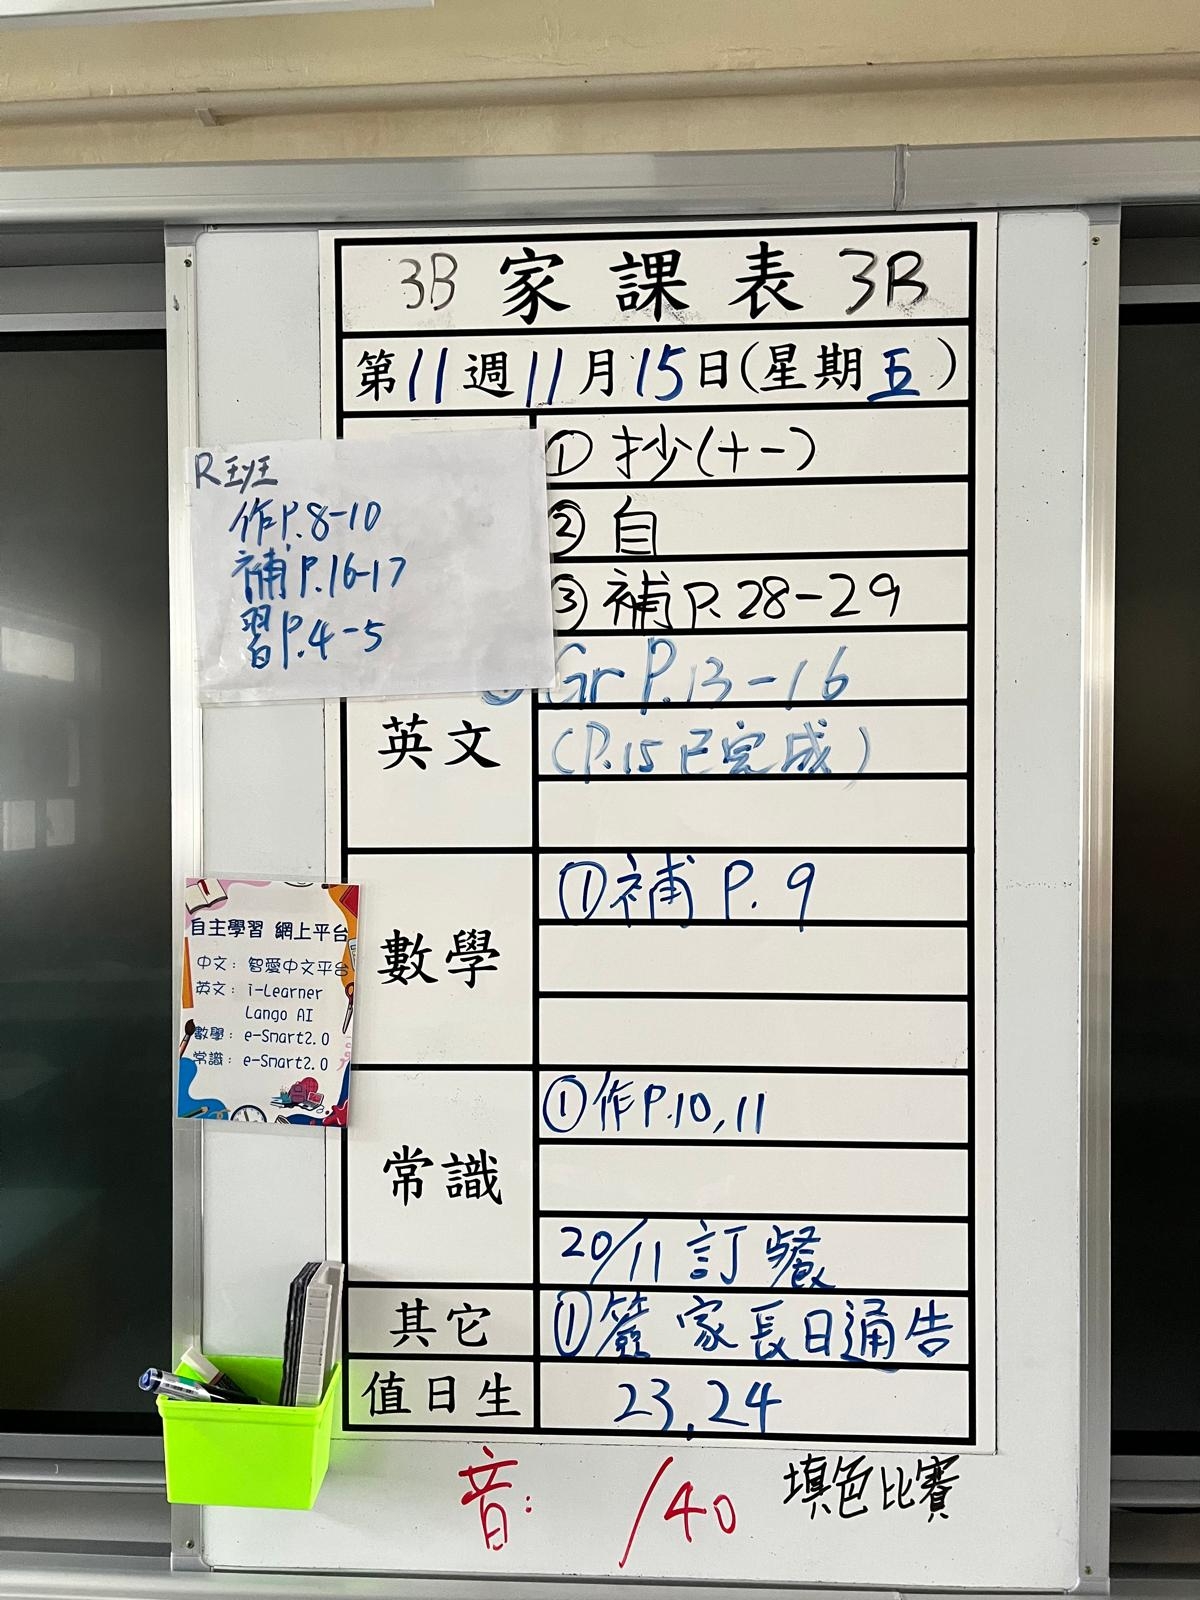 3B 家課表 3B
第11週11月15日(星期五)
R班
作P.8-10
補P.16-17
習P.4-5
① 抄(十一)
② 自
③ 補P.28-29
英文
Gr P.13-16
(P.15已完成)
數學
①補 P.9
自主學習 網上平台
中文：智愛中文平台
英文：i-Learner
Lango AI
數學：e-Smart2.0
常識：e-Smart2.0
常識
①作P.10,11
20/11 訂餐
其它
①簽 家長日通告
值日生
23,24
音: /40
填色比賽